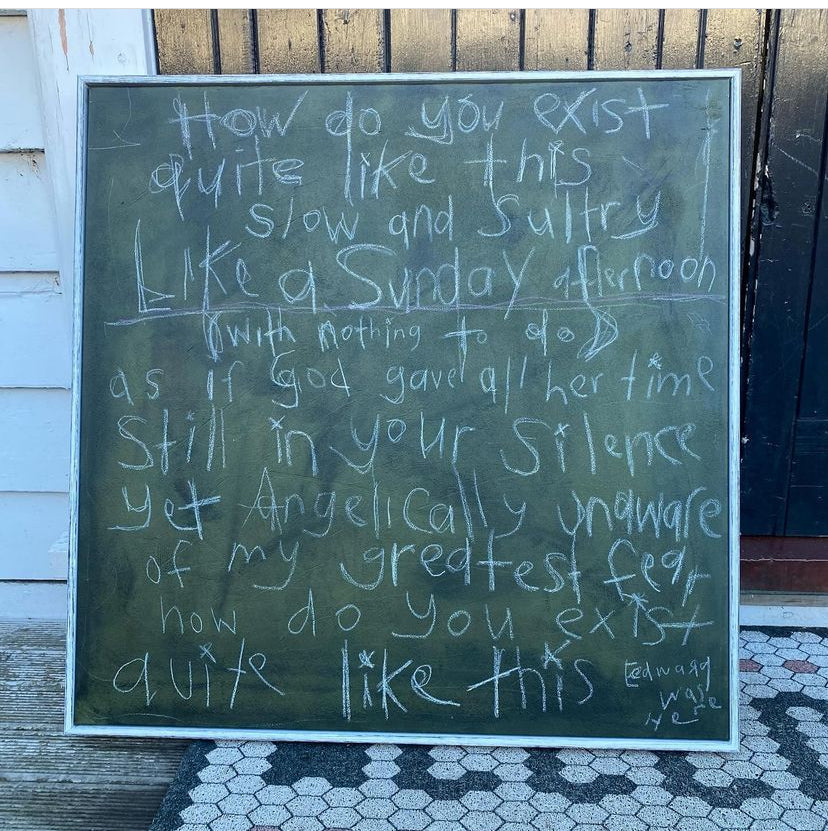 How do you exist
quite like this
slow and sultry
Like a Sunday afternoon
(with nothing to do)
as if God gave all her time
Still in your silence
yet Angelically unaware
of my greatest fear
how do you exist
quite like this
Edward
was
here